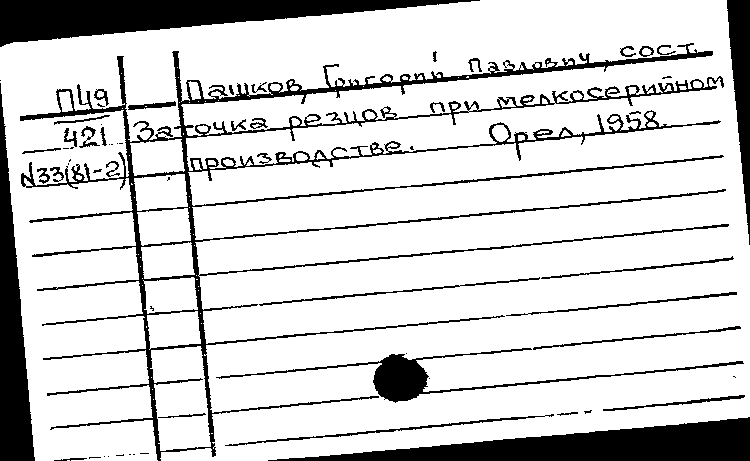 П49 Пашков, Григорий Павлович, сост.
421 Заточка резцов при мелкосерийном
№33(81-2) производстве. Орел, 1958.